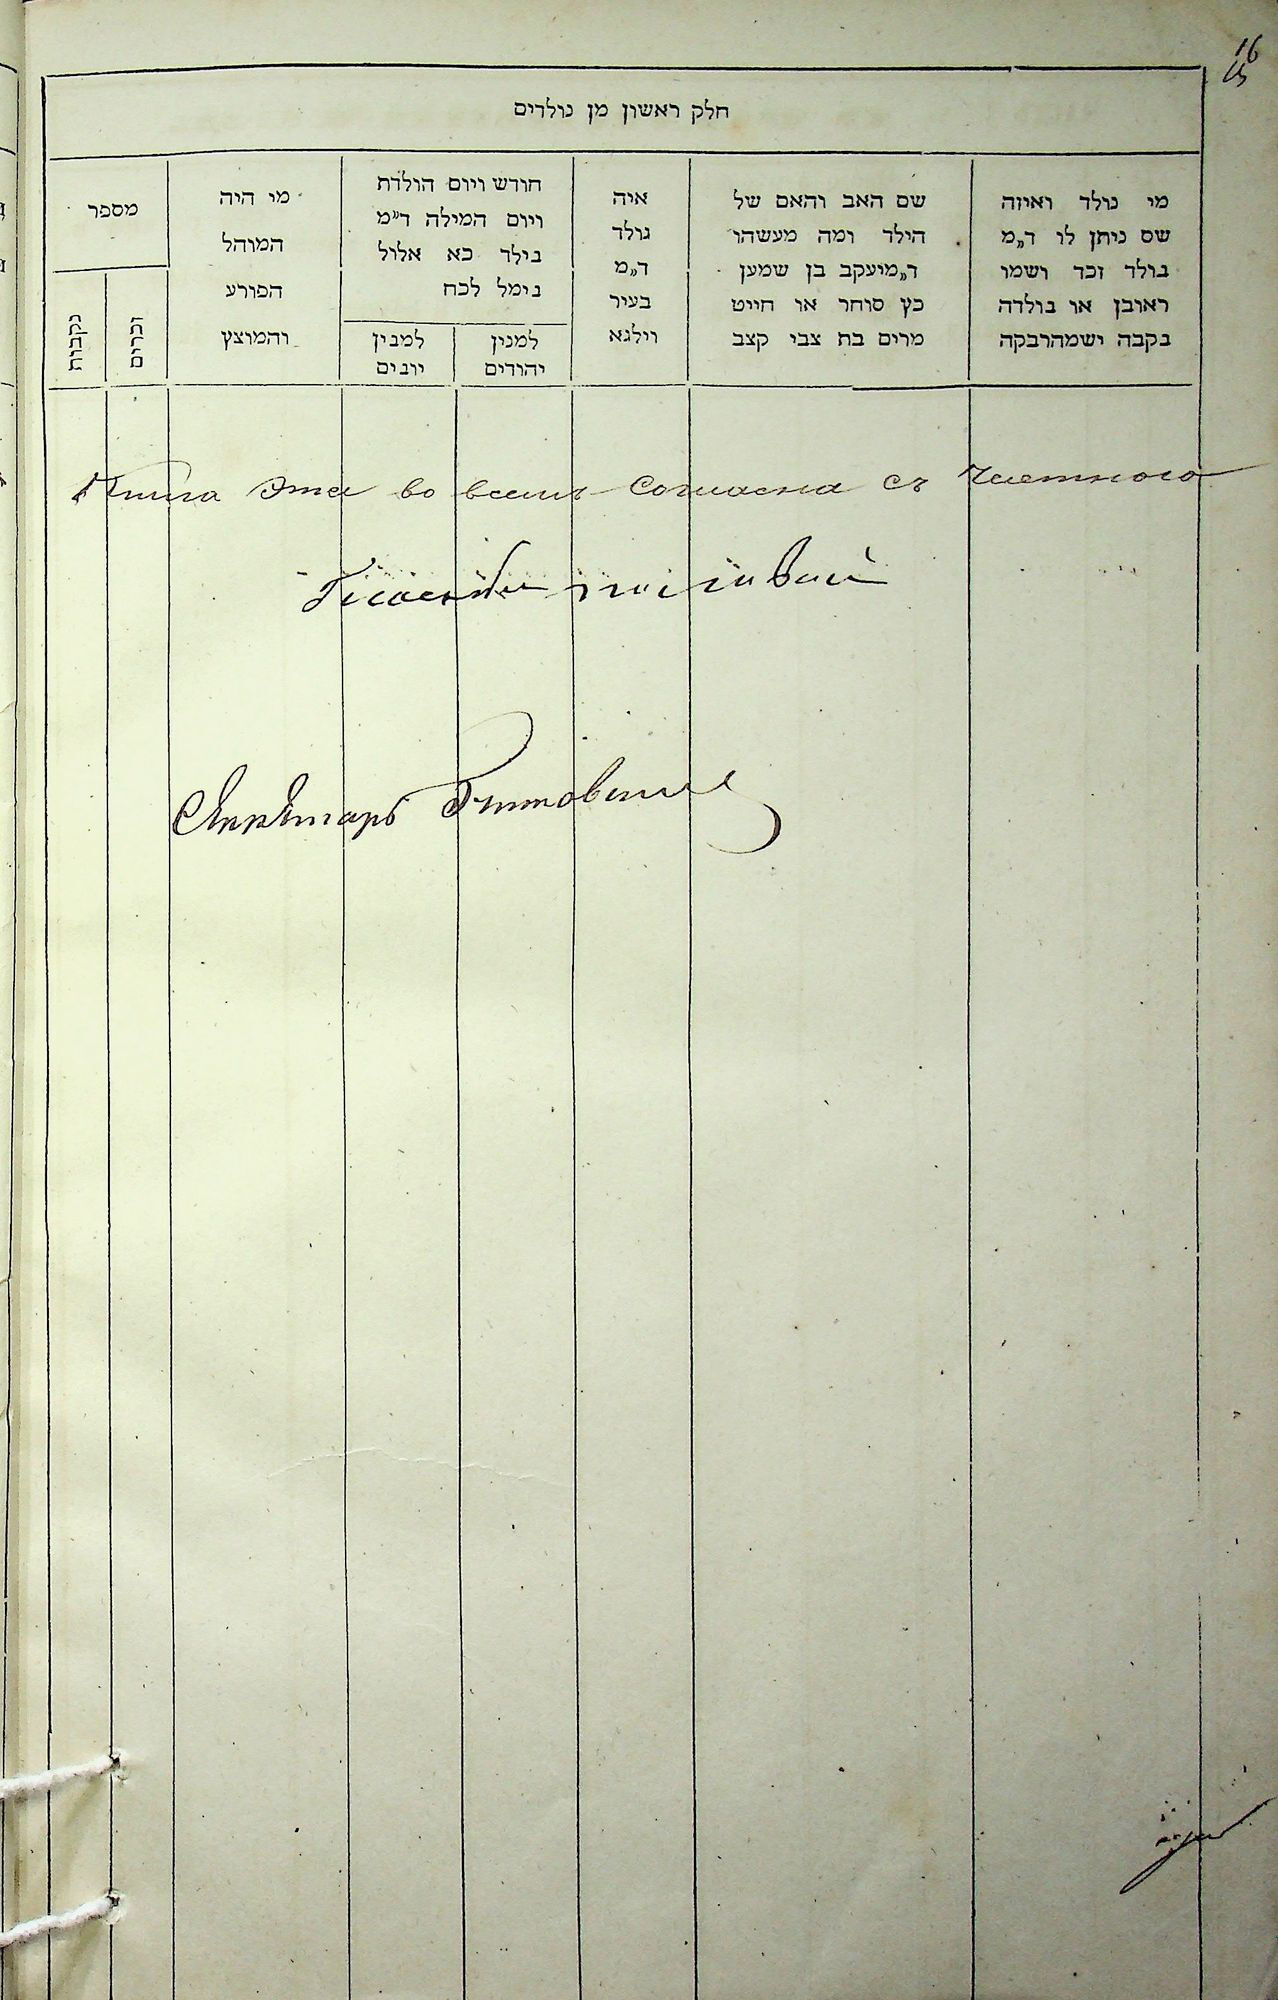 16
15
חלק ראשון מן נולדים
מי נולד ואיזה
שם ניתן לו ד"מ
נולד זכר ושמו
ראובן או נולדה
נקבה ישמהרבקה
שם האב והאם של
הילד ומה מעשהו
ד"מ יעקב בן שמען
כץ סוחר או חייט
מרים בת צבי קצב
איה
נולד
ד"מ
בעיר
ווילנא
חודש ויום הולדת
ויום המילה ד"מ
נילד כא אלול
נימל לכח
למנין
יהודים
למנין
יונים
מי היה
המוהל
הפורע
והמוצץ
מספר
זכרים
נקבות
Книга эта во всемъ согласна съ
Секретарь